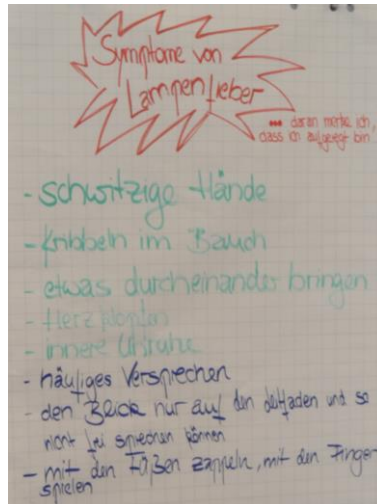 Symptome von
Lampenfieber
... daran merke ich,
dass ich aufgeregt bin
- schwitzige Hände
- Kribbeln im Bauch
- etwas durcheinander bringen
- Herzklopfen
- innere Unruhe
- häufiges Versprechen
- den Blick nur auf den Leitfaden und so
nicht frei sprechen können
- mit den Füßen zappeln, mit den Finger
spielen